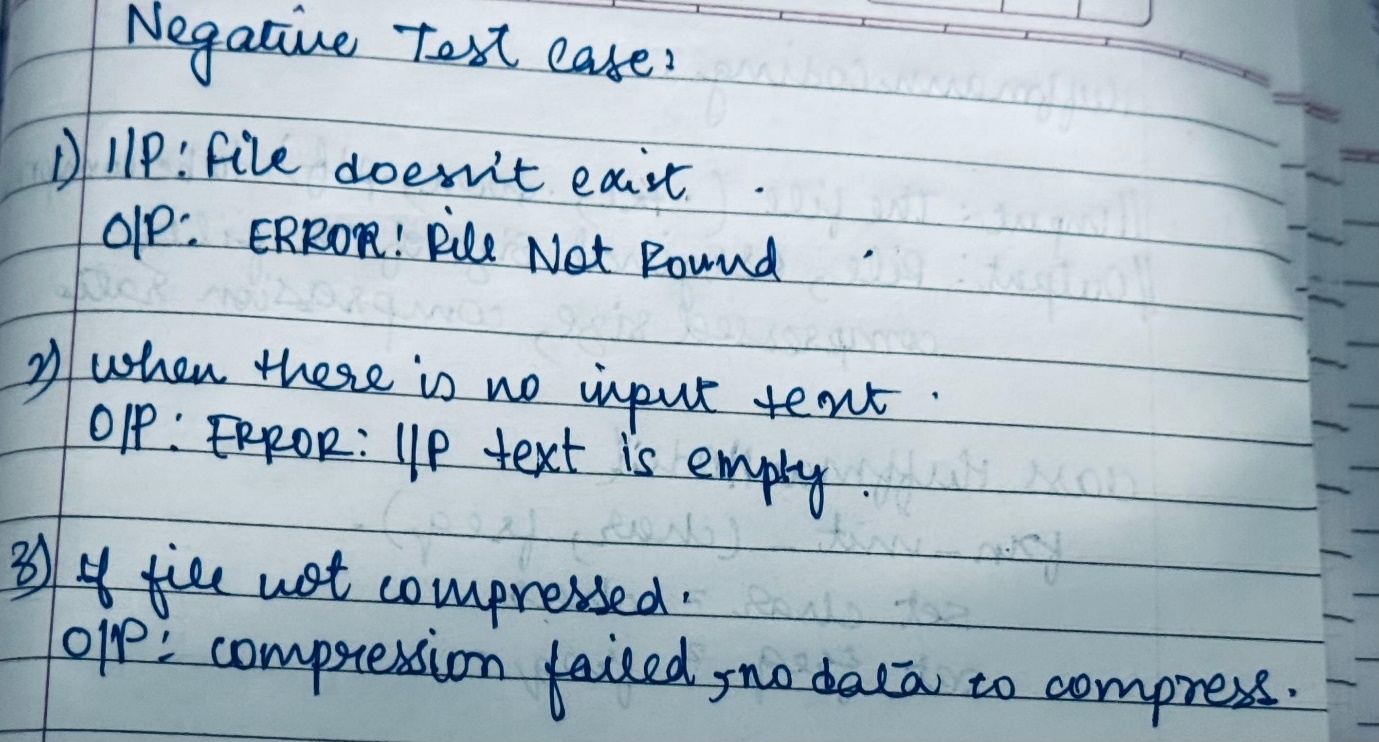 Negative Test Case:
1) I/P: File doesn't exist.
O/P: ERROR! File Not Found
2) when there is no input text.
O/P: ERROR: I/P text is empty.
3) If file not compressed.
O/P: compression failed, no data to compress.